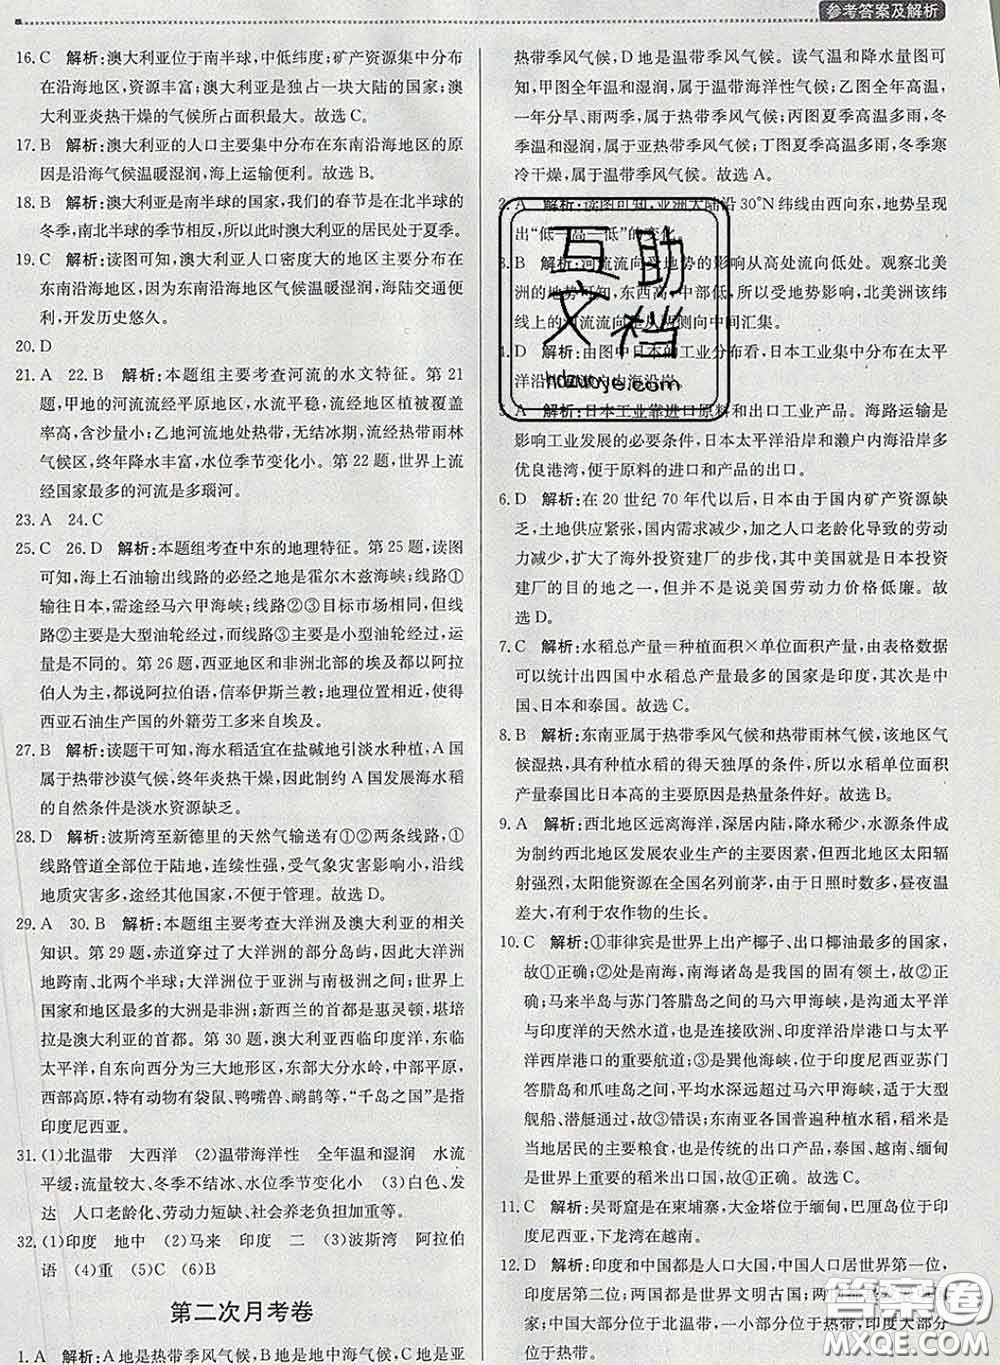 参考答案及解析
16. C　解析:澳大利亚位于南半球,中低纬度;矿产资源集中分布
在沿海地区,资源丰富;澳大利亚是独占一块大陆的国家;澳
大利亚炎热干燥的气候所占面积最大。故选C。
17. B　解析:澳大利亚的人口主要集中分布在东南沿海地区的原
因是沿海气候温暖湿润,海上运输便利。故选B。
18. B　解析:澳大利亚是南半球的国家,我们的春节是在北半球的
冬季,南北半球的季节相反,所以此时澳大利亚的居民处于夏季。
19. C　解析:读图可知,澳大利亚人口密度大的地区主要分布在
东南沿海地区,因为这里的气候温暖湿润,海陆交通便
利,开发历史悠久。
20. D
21. A　22. B　解析:本题组主要考查河流的水文特征。第21
题,甲地的河流流经平原地区,水流平稳,流经地区植被覆盖
率高,含沙量小;乙地河流地处热带,无结冰期,流经热带雨林
气候区,终年降水丰富,水位季节变化小。第22题,世界上流
经国家最多的河流是多瑙河。
23. A　24. C
25. C　26. D　解析:本题组考查中东的地理特征。第25题,读图
可知,海上石油输出线路的必经之地是霍尔木兹海峡;线路①
输往日本,需途经马六甲海峡;线路②③目标市场相同,但线
路②主要是大型油轮经过,而线路③主要是小型油轮经过,运
量是不同的。第26题,西亚地区和非洲北部的埃及都以阿拉
伯人为主,都说阿拉伯语,信奉伊斯兰教;地理位置接近,使得
西亚石油生产国的外籍劳工多来自埃及。
27. B　解析:读题干可知,海水稻适宜在盐碱地引淡水种植,A国
属于热带沙漠气候,终年炎热干燥,因此制约A国发展海水稻
的自然条件是淡水资源缺乏。
28. D　解析:波斯湾至新德里的天然气输送有①②两条线路,①
线路管道全部位于陆地,连续性强,受气象灾害影响小,沿线
地质灾害多,途经其他国家,不便于管理。故选D。
29. A　30. B　解析:本题组主要考查大洋洲及澳大利亚的相关
知识。第29题,赤道穿过了大洋洲的部分岛屿,因此大洋洲
地跨南、北两个半球;大洋洲位于亚洲与南极洲之间;世界上
国家和地区最多的大洲是非洲;新西兰的首都是惠灵顿,堪培
拉是澳大利亚的首都。第30题,澳大利亚西临印度洋,东临
太平洋,自西向东分为三大地形区,东部大分水岭,中部盆地,
西部高原,特有动物有袋鼠、鸭嘴兽、鸸鹋等,“千岛之国”是指
印度尼西亚。
31. (1)北温带　大西洋　(2)温带海洋性　全年温和湿润　水流
平缓;流量较大、冬季不结冰、水位季节变化小　(3)白色、发
达　人口老龄化、劳动力短缺、社会养老负担加重等。
32. (1)印度　地中　(2)马来　印度　二　(3)波斯湾　阿拉伯
语　(4)重　(5)C　(6)B
第二次月考卷
1. A　解析:A地是热带季风气候,B地是地中海气候,C地是亚
热带季风气候,D地是温带季风气候。读气温和降水量图可
知,甲图全年温和湿润,属于温带海洋性气候;乙图全年高温,
一年分旱、雨两季,属于热带季风气候;丙图夏季高温多雨,冬
季温和少雨,属于亚热带季风气候;丁图夏季高温多雨,冬季寒
冷干燥,属于温带季风气候。故选A。
2. A　解析:读图可知,亚洲大陆沿30°N纬线由西向东,地势呈现
出“低—高—低”的变化。
3. B　解析:河流流向受地势的影响从高处流向低处。观察北美
洲的地势可知,东西高,中部低,所以受地势影响,北美洲该纬
线上的河流流向是从两侧向中间汇集。
4. D　解析:由图中日本的工业分布看,日本工业集中分布在太平
洋沿岸和濑户内海沿岸。
5. A　解析:日本工业靠进口原料和出口工业产品。海路运输是
影响工业发展的必要条件,日本太平洋沿岸和濑户内海沿岸多
优良港湾,便于原料的进口和产品的出口。
6. D　解析:在20世纪70年代以后,日本由于国内矿产资源缺
乏,土地供应紧张,国内市场较小,加之人口老龄化导致的劳动
力减少,扩大了海外投资建厂的步伐,其中美国就是日本投资
建厂的目的地之一,但并不能说美国劳动力价格低廉。故
选D。
7. C　解析:水稻总产量=种植面积×单位面积产量,由表格数据
可以统计出四国中水稻总产量最多的国家是印度,其次是中
国、日本和泰国。故选C。
8. B　解析:东南亚属于热带季风气候和热带雨林气候,该地区气
候湿热,具有种植水稻的得天独厚的条件,所以水稻单位面积
产量泰国比日本高的主要原因是热量条件好。故选B。
9. A　解析:西北地区远离海洋,深居内陆,降水稀少,水源条件
成为制约西北地区发展农业生产的主要因素,但西北地区太阳辐
射强烈,太阳能资源在全国名列前茅,由于日照时数多,昼夜温
差大,有利于农作物的生长。
10. C　解析:①菲律宾是世界上出产椰子、出口椰油最多的国家,
故①正确;②处是南海,南海诸岛是我国的固有领土,故②正
确;马来半岛与苏门答腊岛之间的马六甲海峡,是沟通太平洋
与印度洋的天然水道,也是连接欧洲、印度洋沿岸港口与太平
洋西岸港口的重要航道;③是巽他海峡,位于印度尼西亚苏门
答腊岛和爪哇岛之间,平均水深远超过马六甲海峡,适于大型
舰船、潜艇通过,故③错误;东南亚各国普遍种植水稻,稻米是
当地居民的主要粮食,也是传统的出口产品,泰国、越南、缅甸
是世界重要的稻米出口国,故④正确。故选C。
11. C　解析:吴哥窟在柬埔寨,大金塔位于缅甸,巴厘岛位于印度
尼西亚,下龙湾在越南。
12. D　解析:印度和中国都是人口大国,中国人口居世界第一位,
印度居第二位;两国都是世界文明古国;两国
印度大部分位于热带,一小部分位于北温带,中国大部分位于北温带,一小部分
位于热带。
互助
文档
hdzuoye.com
答案圈
MXQE.COM